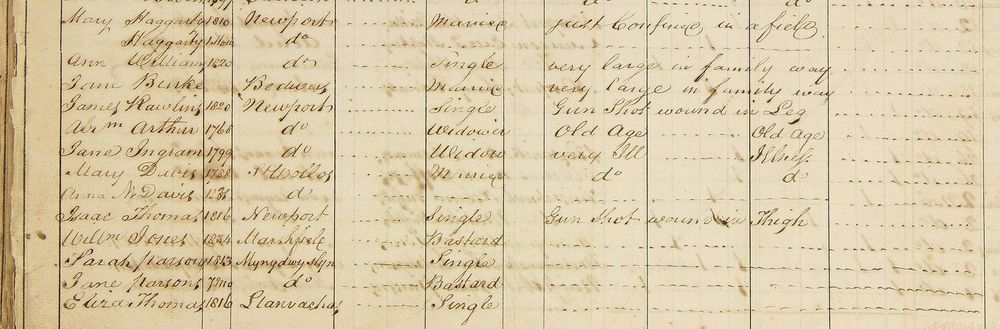 Mary Haggarty 1810 Newport Married just Confined in a field.
Haggarty do
Ann William 1820 do Single very large in family way
Jane Burke Bedwas Married very large in family way
James Rawlins 1820 Newport Single Gun Shot wound in Leg
Abrm Arthur 1768 do Widower Old Age Old Age
Jane Ingram 1799 do Widow very Ill Illness
Mary Davis 1788 St Wollos Married do do
Anna M Davis do
Isaac Thomas 1816 Newport Single Gun Shot wound in Thigh
Willm Jones 1824 Marshfield Bastard
Sarah Parsons 1813 Single
Jane Parsons do Bastard
Eliza Thomas 1816 Llanvaches Single